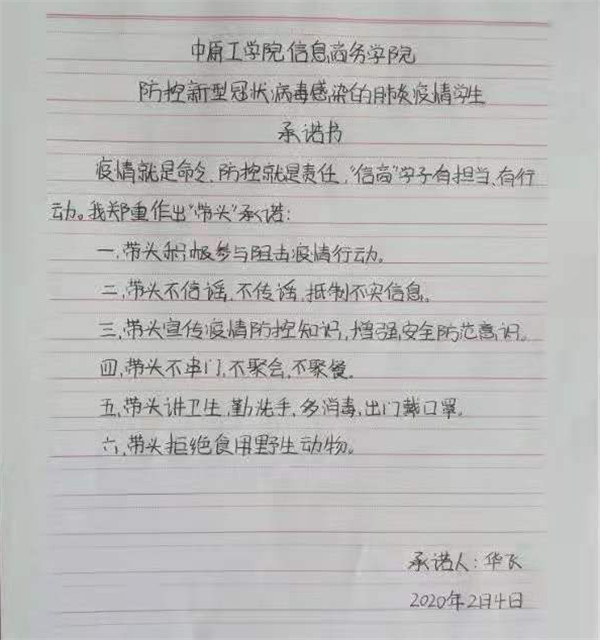 中原工学院信息商务学院
防控新型冠状病毒感染的肺炎疫情学生
承诺书
疫情就是命令、防控就是责任，“信商”学子有担当、有行
动。我郑重作出“带头”承诺：
一、带头积极参与阻击疫情行动。
二、带头不信谣，不传谣，抵制不实信息。
三、带头宣传疫情防控知识，增强安全防范意识。
四、带头不串门，不聚会，不聚餐。
五、带头讲卫生，勤洗手，多消毒，出门戴口罩。
六、带头拒绝食用野生动物。
承诺人：华飞
2020年2月4日